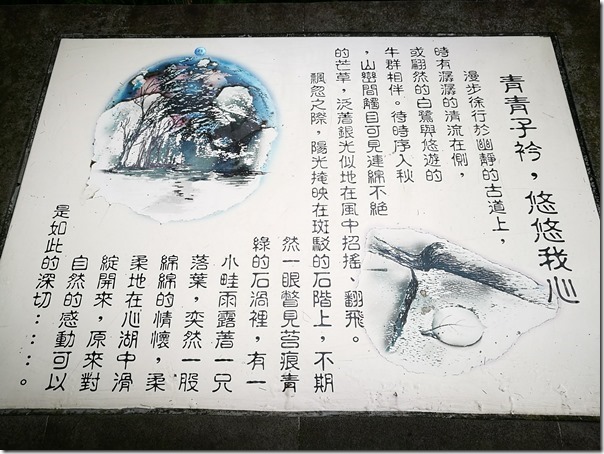 青青子衿，悠悠我心
漫步徐行於幽靜的古道上，
時有潺潺的清流在側，
或翩然的白鷺與悠遊的
牛群相伴。待時序入秋
，山巒間觸目可見連綿不絕
的芒草，泛著銀光似地在風中招搖、翻飛。
飄忽之際，陽光掩映在斑駁的石階上，不期
然一眼瞥見苔痕青
綠的石渦裡，有一
小畦雨露著一只
落葉，奕然一股
綿綿的情懷，柔
柔地在心湖中滑
綻開來，原來對
自然的感動可以
是如此的深切‥‥。